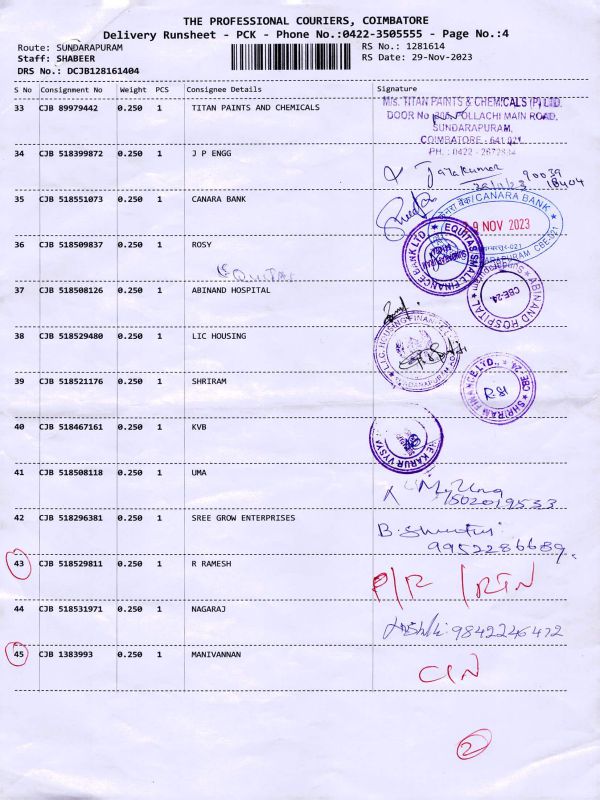 THE PROFESSIONAL COURIERS, COIMBATORE
Delivery Runsheet - PCK - Phone No.:0422-3505555 - Page No.:4
Route: SUNDARAPURAM
RS No.: 1281614
Staff: SHABEER
RS Date: 29-Nov-2023
DRS No.: DCJB128161404
S No Consignment No Weight PCS Consignee Details Signature
33 CJB 89979442 0.250 1 TITAN PAINTS AND CHEMICALS
M/s. TITAN PAINTS & CHEMICALS (P) LTD.
POLLACHI MAIN ROAD,
SUNDARAPURAM,
COIMBATORE - 641 021.
34 CJB 518399872 0.250 1 J P ENGG
Jayakumar 90039
35 CJB 518551073 0.250 1 CANARA BANK
CANARA BANK
NOV 2023
36 CJB 518509837 0.250 1 ROSY
EQUITAS SMALL FINANCE BANK LTD
37 CJB 518508126 0.250 1 ABINAND HOSPITAL
ABINAND HOSPITAL
CBE-24.
38 CJB 518529480 0.250 1 LIC HOUSING
L.I.C. HOUSING FINANCE
39 CJB 518521176 0.250 1 SHRIRAM
SHRIRAM FINANCE LTD., CBE-24
40 CJB 518467161 0.250 1 KVB
THE KARUR VYSYA
41 CJB 518508118 0.250 1 UMA
M. Uma
42 CJB 518296381 0.250 1 SREE GROW ENTERPRISES
9952286689
43 CJB 518529811 0.250 1 R RAMESH
P/R / RTN
44 CJB 518531971 0.250 1 NAGARAJ
9842246472
45 CJB 1383993 0.250 1 MANIVANNAN
CIN
2